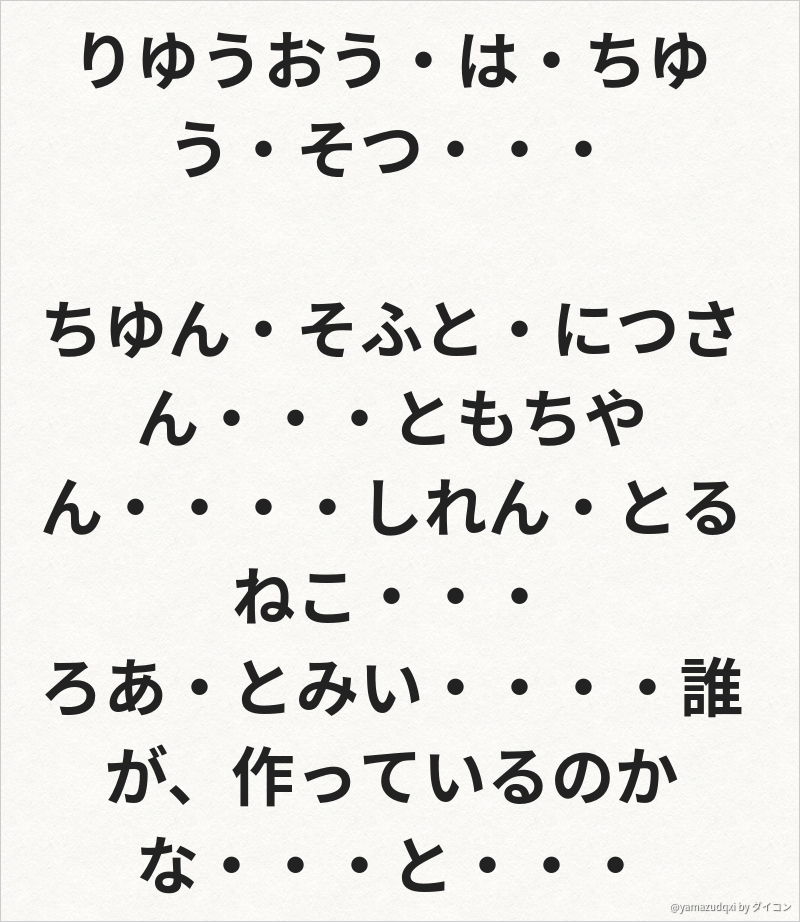 りゆうおう・は・ちゆ
う・そつ・・・
ちゆん・そふと・につさ
ん・・・ともちや
ん・・・・しれん・とる
ねこ・・・
ろあ・とみい・・・・誰
が、作っているのか
な・・・と・・・
@yamazudqxi by ダイコン